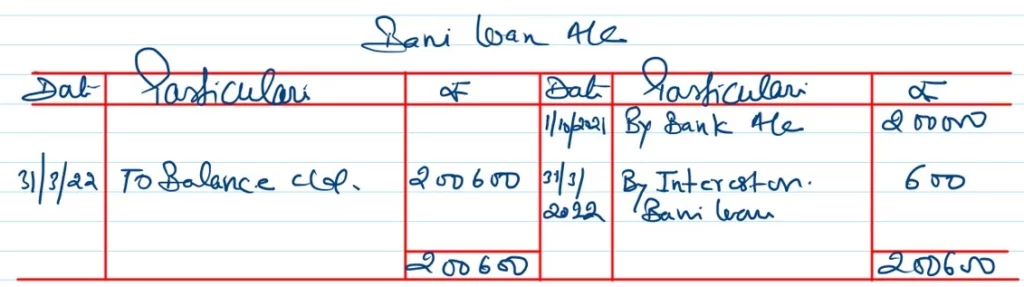 Bani loan A/c
Date Particulars ₹ Date Particulars ₹
1/10/2021 By Bank A/c 200000
31/3/22 To Balance c/d. 200600 31/3/2022 By Interest on. Bani loan 600
200600 200600